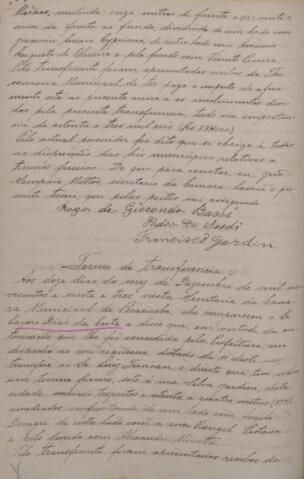 Moraes, medindo onze metros de frente e (25) vinte e
cinco da frente ao fundo, dividindo de um lado com
Joaquim Amaro Cypriano, de outro lado com
Augusto de Oliveira e pelo fundo com Vicente
Pelo transferente foram apresentados recibos da The-
souraria Municipal de ter pago o imposto de afora-
mento até ao presente anno e os emolumentos devi-
dos pela presente transferencia, tudo na importan-
cia de oitenta e tres mil reis (Rs 83$000)
Pelo actual possuidor foi dito que se obriga a todas
as disposições das leis municipaes relativas a
terrenos foreiros. Do que para constar, eu,
Sampaio Mattos, secretario da Camara lavrei o pre-
sente termo, que pelas partes vai assignado
Roger de Giocondo Bassi
Pedro De Nardi
Francisco Jardim
Termo de transferencia
Aos doze dias do mez de Dezembro de mil no-
vecentos e vinte e tres nesta Secretaria da Cama-
ra Municipal de Piracicaba, ahi compareceu o
Lazaro Dias da Costa e disse que, em virtude da au-
torisação que lhe foi concedida pela Prefeitura, em
despacho ao seu requerimento datado de 10 deste mez,
transfere ao Sr. o direito que tem sobre
um terreno foreiro, sito á rua Silva Jardim, desta
cidade, medindo trezentos e setenta e quatro metros (374)
quadrados, confrontando de um lado com
de outro lado com a rua Rangel Pestana
e pelo fundo com Alexandre
Pelo transferente foram apresentados recibos da